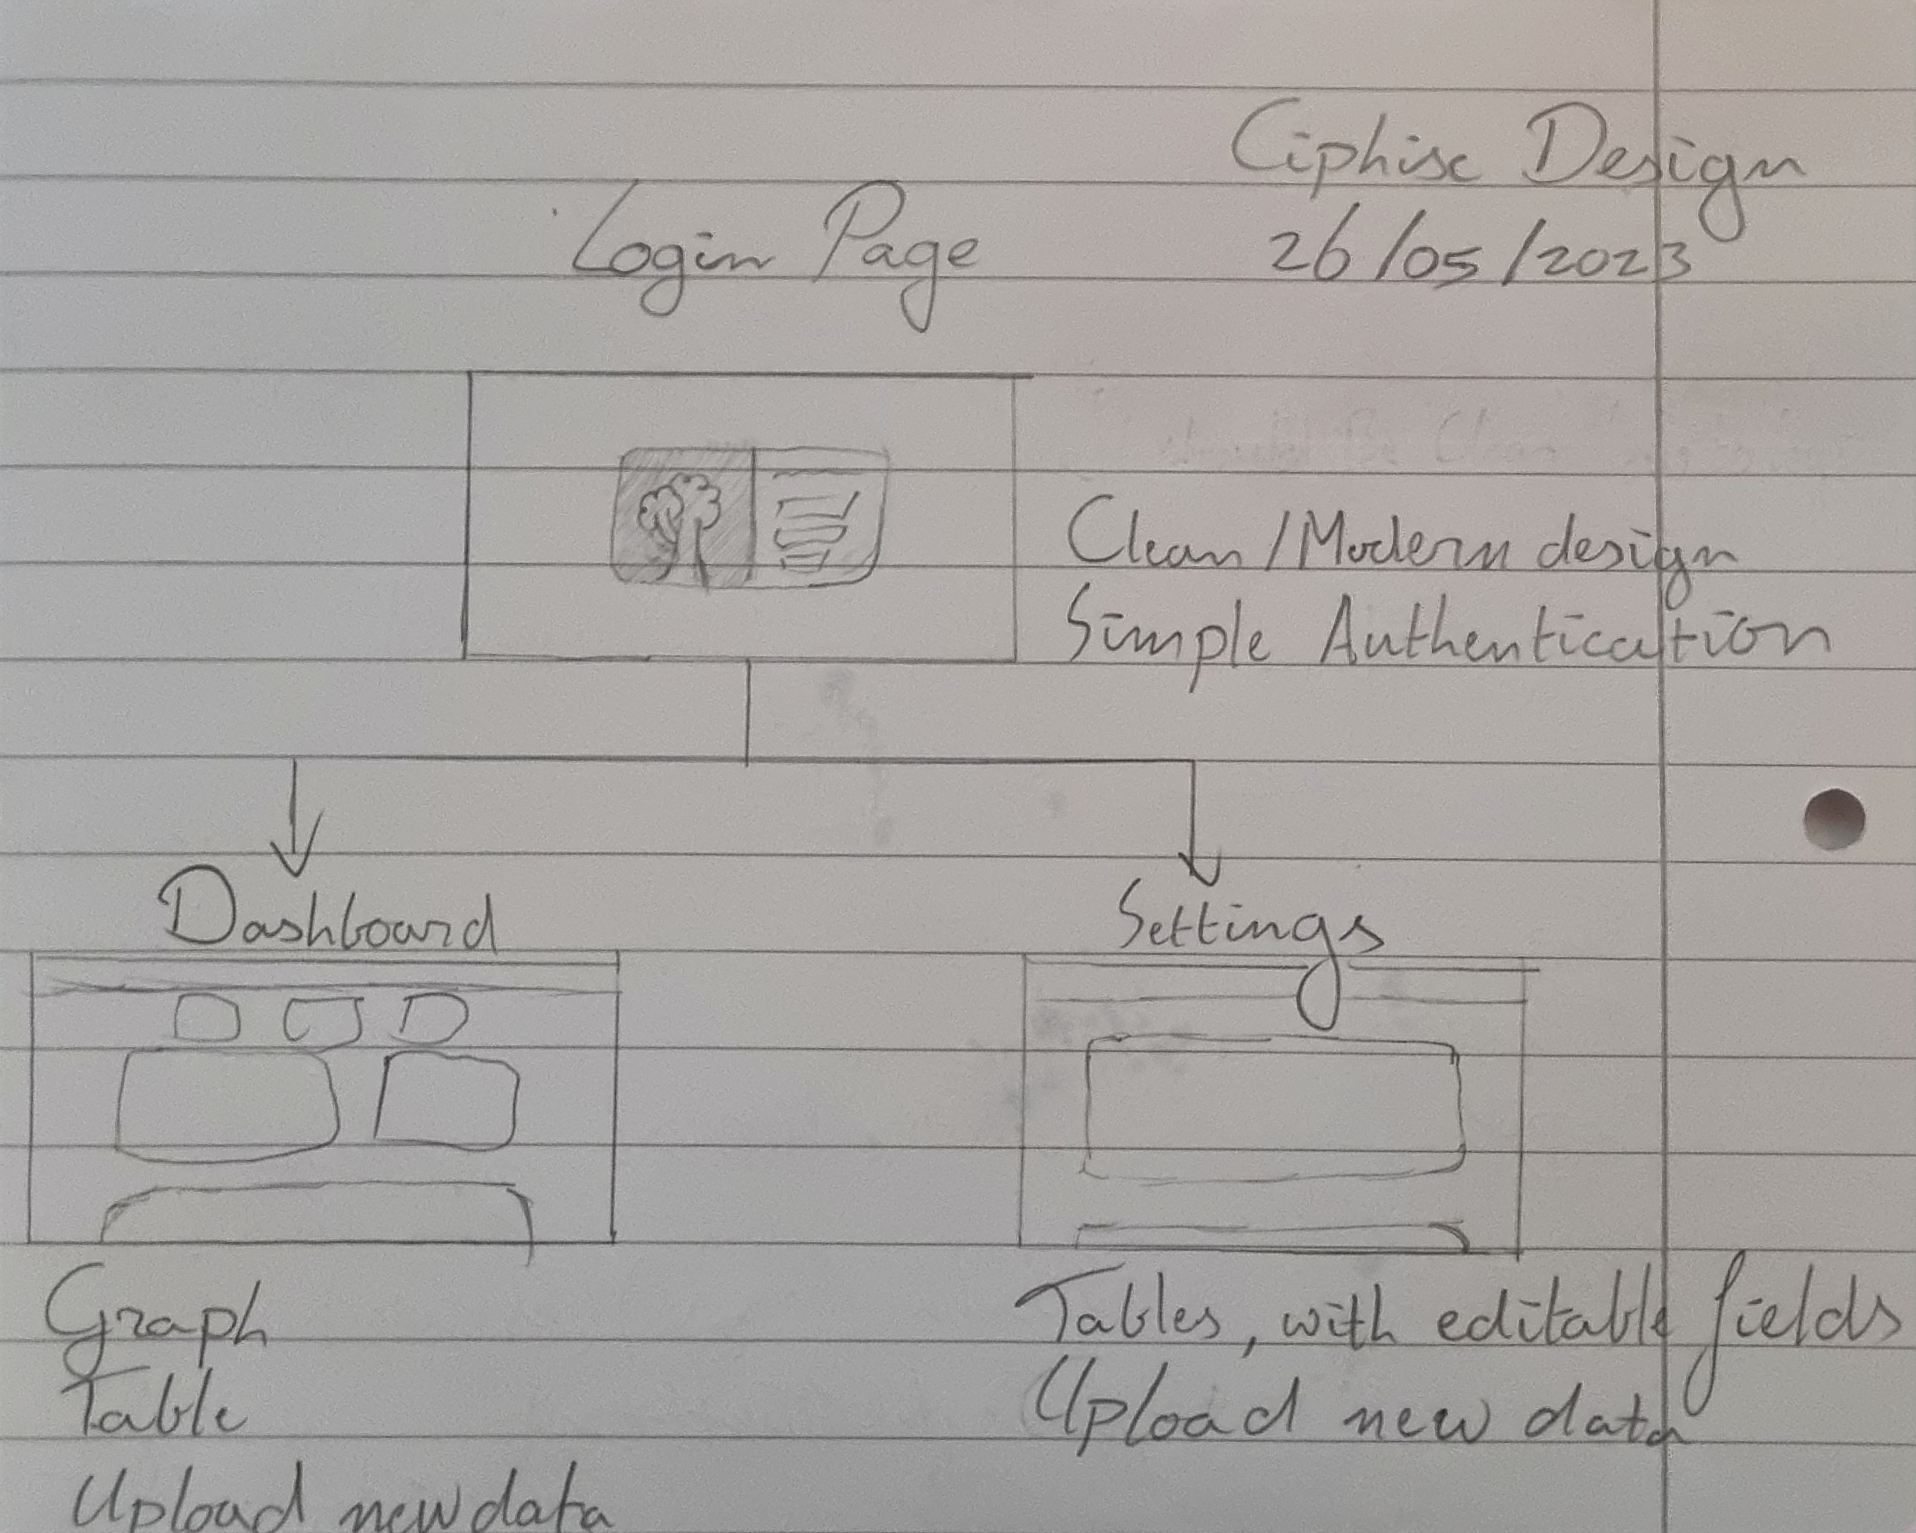 Ciphise Design
Login Page
26/05/2023
Clean/Modern design
Simple Authentication
Dashboard
Settings
Graph
Table
Upload new data
Tables, with editable fields
Upload new data